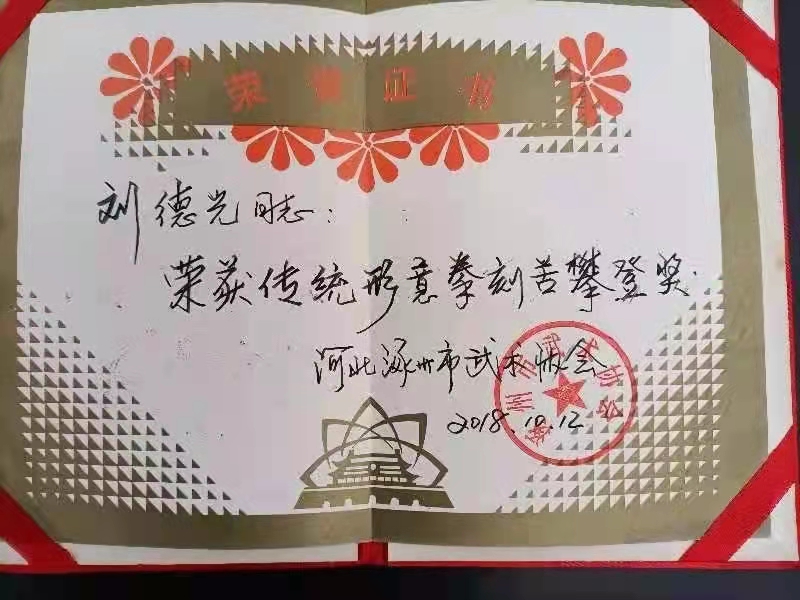 荣誉证书
刘德光同志：
荣获传统形意拳刻苦攀登奖.
河北涿州市武术协会
2018.10.12
涿州市武术协会